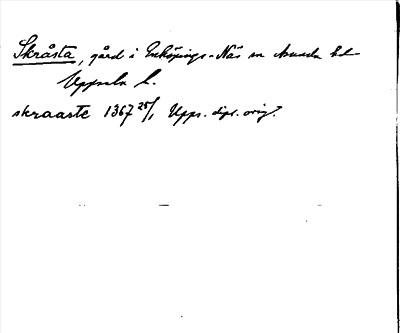 Skråsta, gård i Enköpings-Näs sn Åsunda hd
Uppsala l.
skraaste 1367 25/1 Upps. dipl. orig.